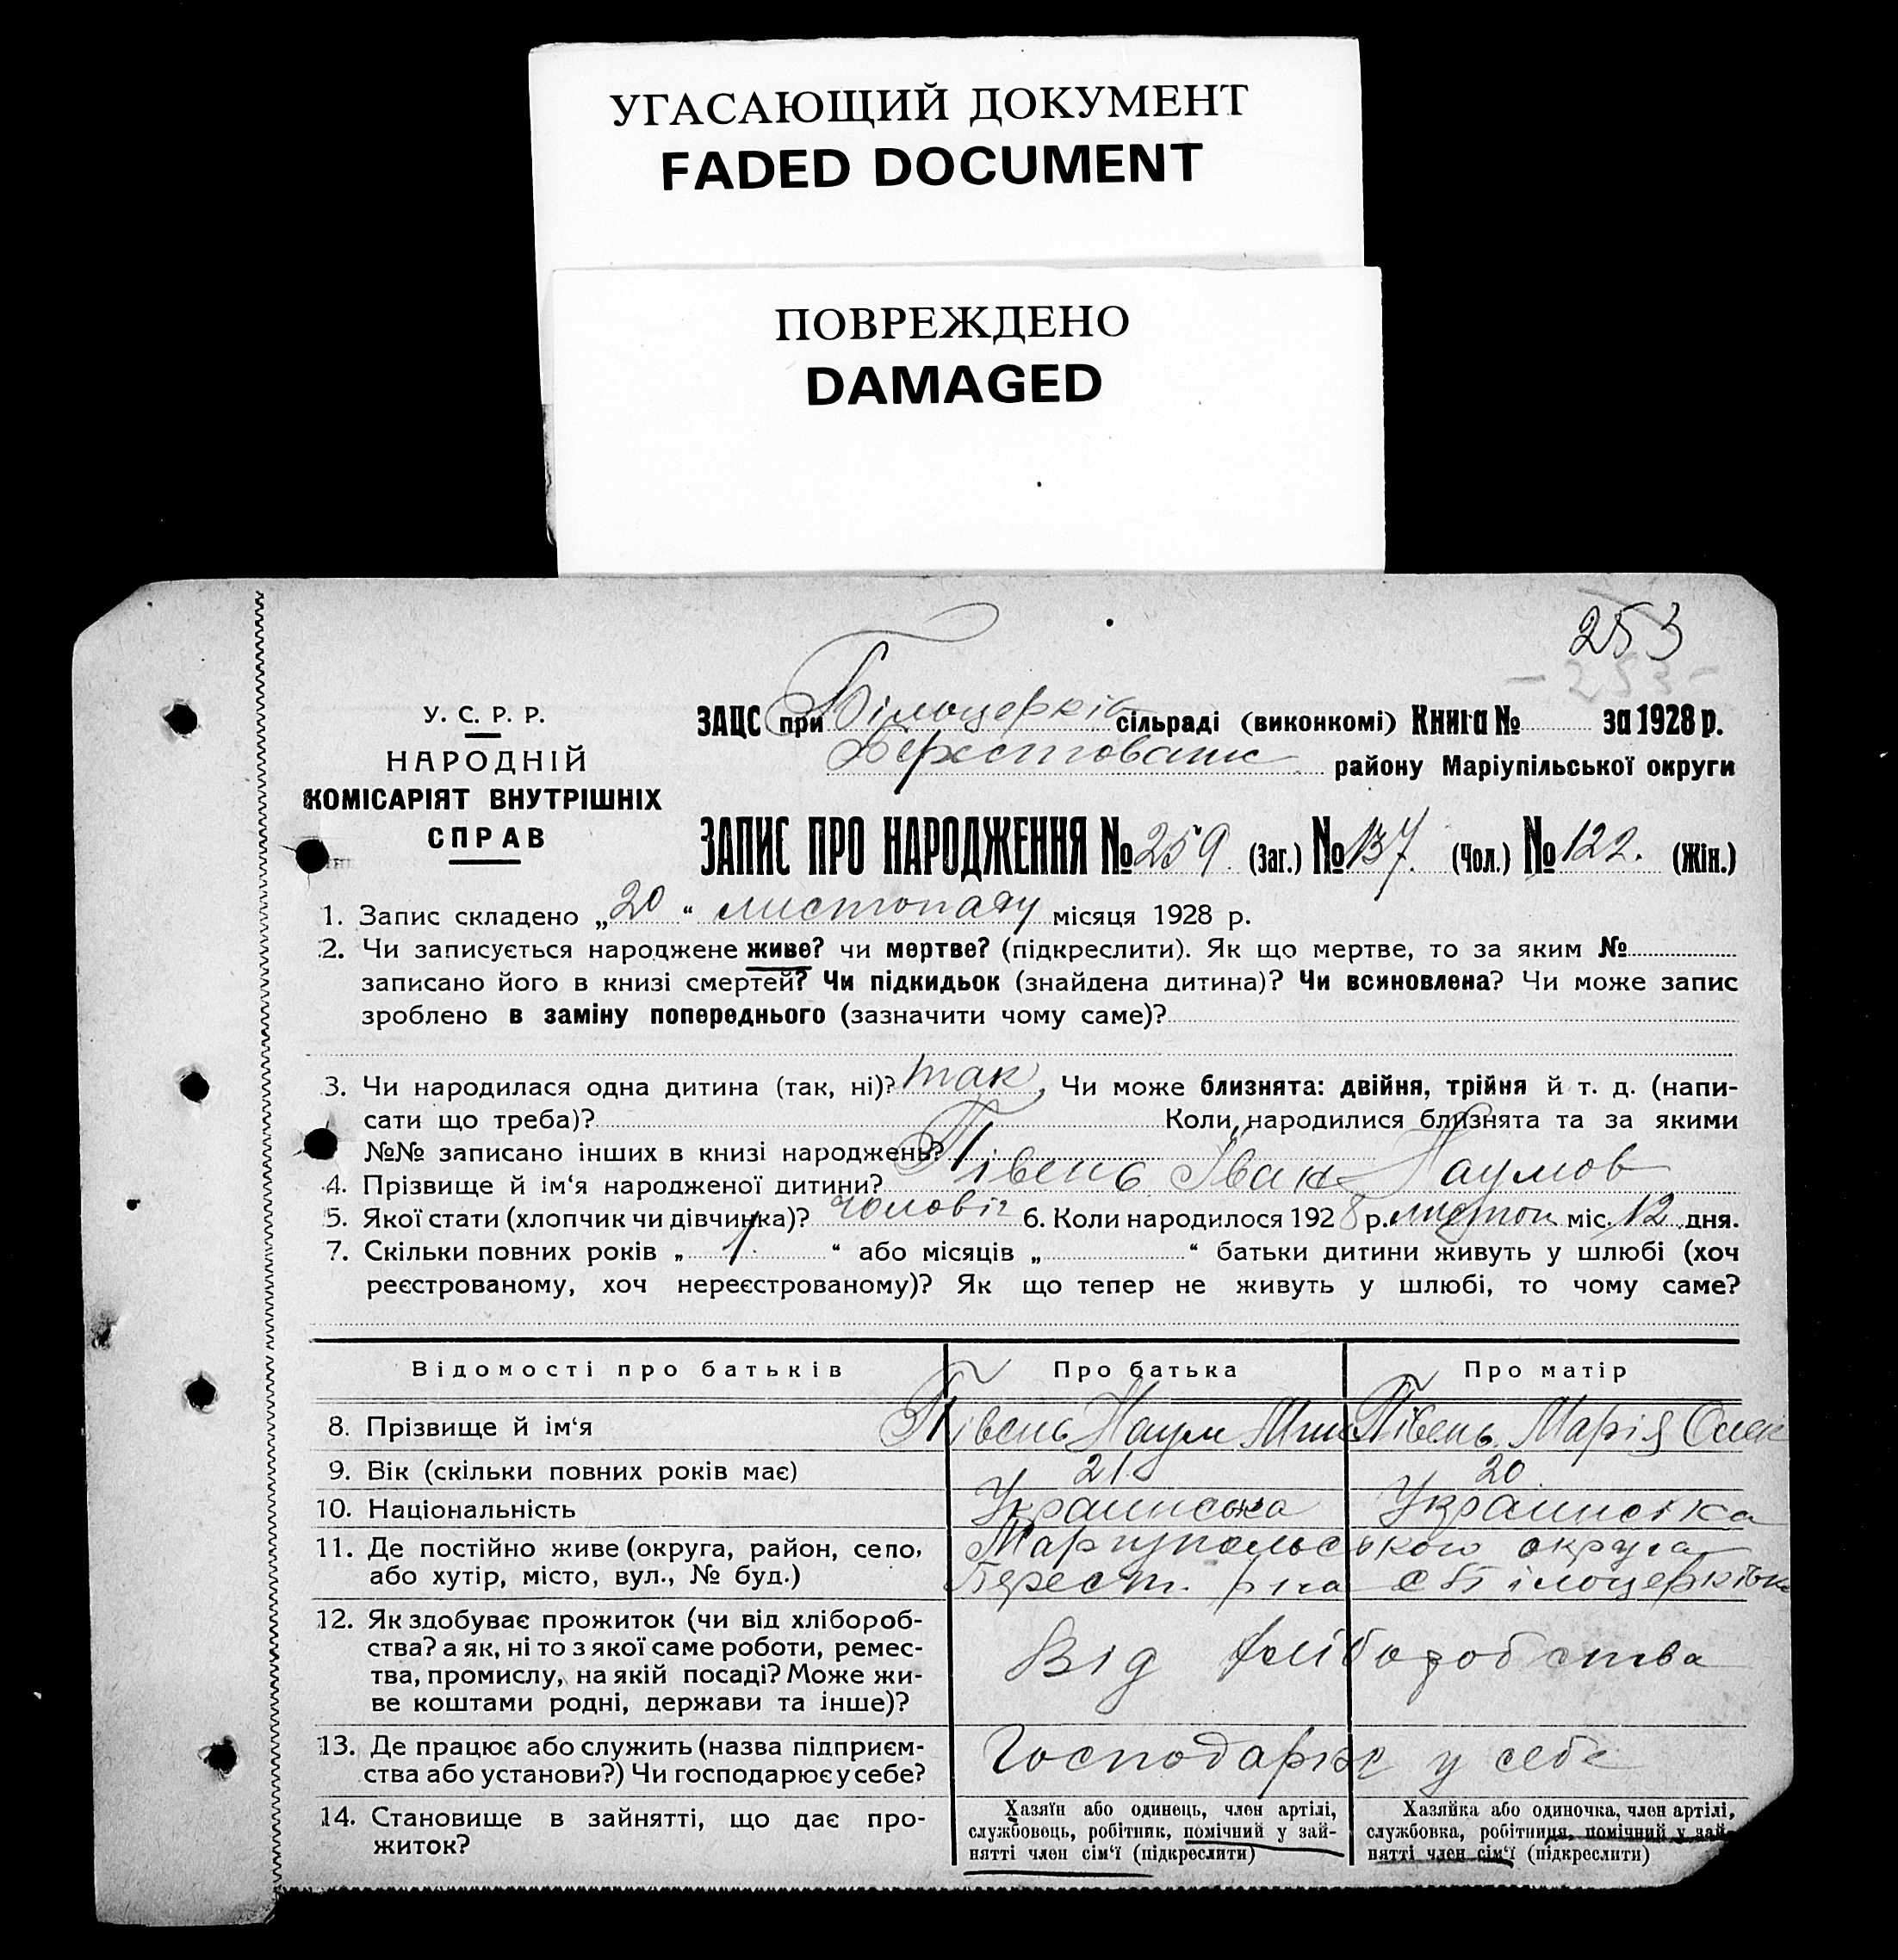 УГАСАЮЩИЙ ДОКУМЕНТ
FADED DOCUMENT
ПОВРЕЖДЕНО
DAMAGED
253
- 253 -
У. С. Р. Р.
НАРОДНІЙ
КОМІСАРІЯТ ВНУТРІШНІХ
СПРАВ
ЗАЦС при Білоцерків сільраді (виконкомі) Книга № за 1928 р.
Берестовськ району Маріупільської округи
ЗАПИС ПРО НАРОДЖЕННЯ № 259 (Заг.) № 137. (Чол.) № 122. (Жін.)
1. Запис складено „ 20 “ листопаду місяця 1928 р.
2. Чи записується народжене живе? чи мертве? (підкреслити). Як що мертве, то за яким №
записано його в книзі смертей? Чи підкидьок (знайдена дитина)? Чи всиновлена? Чи може запис
зроблено в заміну попереднього (зазначити чому саме)?
3. Чи народилася одна дитина (так, ні)? так, Чи може близнята: двійня, трійня й т. д. (напи-
сати що треба)? Коли народилися близнята та за якими
№№ записано інших в книзі народжень?
4. Прізвище й ім'я народженої дитини? Півень Іван Наумов
5. Якої стати (хлопчик чи дівчинка)? чоловіч 6. Коли народилося 1928 р. листоп міс. 12 дня.
7. Скільки повних років „ 1. “ або місяців „ “ батьки дитини живуть у шлюбі (хоч
реєстрованому, хоч нереєстрованому)? Як що тепер не живуть у шлюбі, то чому саме?
Відомості про батьків Про батька Про матір
8. Прізвище й ім'я Півень Наум Півень Марія Олек
9. Вік (скільки повних років має) 21 20
10. Національність Украинська Украинська
11. Де постійно живе (округа, район, село, Маріупольського округа
або хутір, місто, вул., № буд.) Берест. р на с Білоцерківк
12. Як здобуває прожиток (чи від хлібороб-
ства? а як, ні то з якої саме роботи, ремес-
тва, промислу, на якій посаді? Може жи-
ве коштами родні, держави та інше)?
Від хліборобства
13. Де працює або служить (назва підприєм-
ства або установи?) Чи господарює у себе?
Господарює у себе
14. Становище в зайнятті, що дає про-
житок?
Хазяїн або одинець, член артілі,
службовець, робітник, помічний у зай-
нятті член сім'ї (підкреслити)
Хазяйка або одиночка, член артілі,
службовка, робітниця, помічний у зай-
нятті член сім'ї (підкреслити)